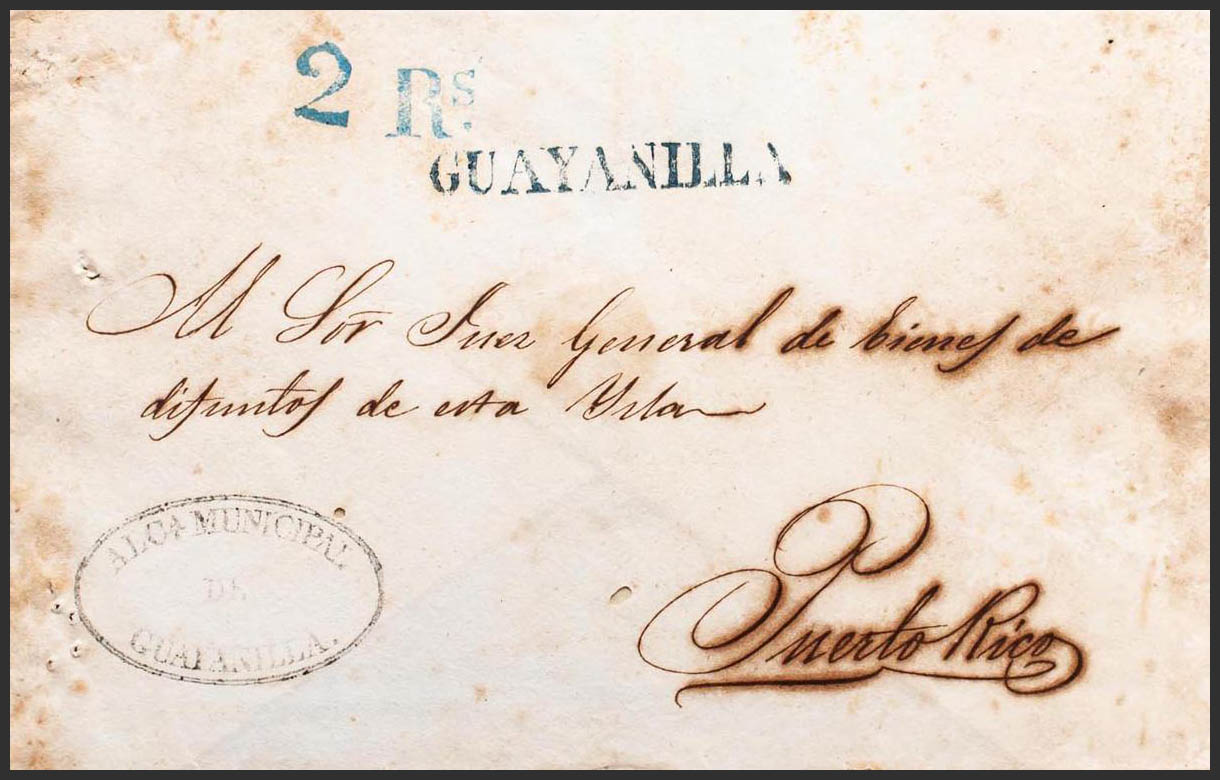 2 Rs.
GUAYANILLA
Al Sor Juez General de bienes de
difuntos de esta Ysla
ALCA MUNICIPAL
DE
GUAYANILLA.
Puerto Rico